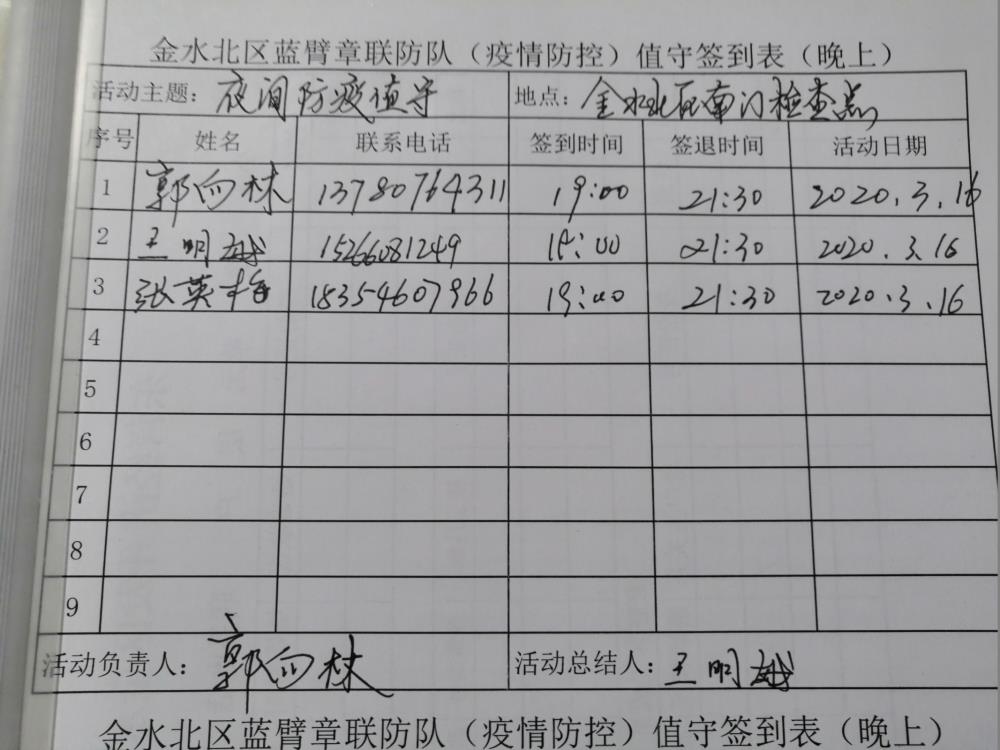 金水北区蓝臂章联防队（疫情防控）值守签到表（晚上）
活动主题：夜间防疫值守 地点：金水北区南门检查点
序号 姓名 联系电话 签到时间 签退时间 活动日期
1 郭向林 13780764311 19:00 21:30 2020.3.16
2 王明 15266081249 19:00 21:30 2020.3.16
3 张英梅 18354607966 19:00 21:30 2020.3.16
4
5
6
7
8
9
活动负责人：郭向林 活动总结人：王明
金水北区蓝臂章联防队（疫情防控）值守签到表（晚上）